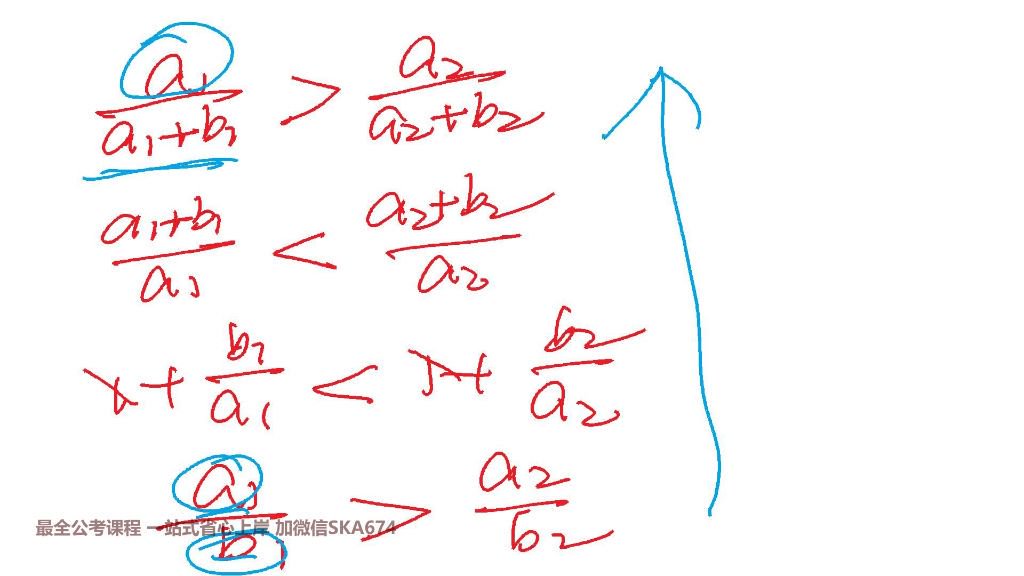 a₁/(a₁+b₁) > a₂/(a₂+b₂)
(a₁+b₁)/a₁ < (a₂+b₂)/a₂
1+b₁/a₁ < 1+b₂/a₂
a₁/b₁ > a₂/b₂
最全公考课程 一站式省心上岸 加微信SKA674